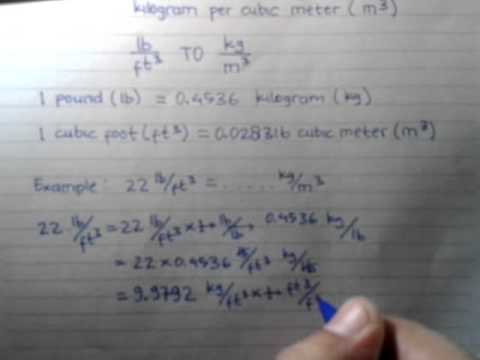 kilogram per cubic meter (m³)
lb/ft³ TO kg/m³
1 pound (lb) = 0.4536 kilogram (kg)
1 cubic foot (ft³) = 0.028316 cubic meter (m³)
Example: 22 lb/ft³ = ...... kg/m³
22 lb/ft³ = 22 lb/ft³ × 0.4536 kg/lb
= 22 × 0.4536 lb/ft³ kg/lb
= 9.9792 kg/ft³ × ft³/